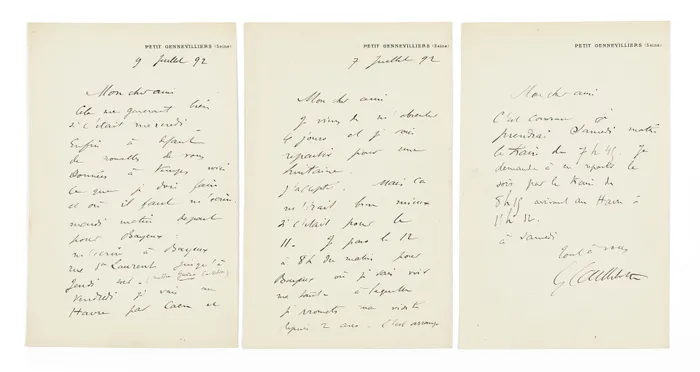 PETIT GENNEVILLIERS (Seine)
9 Juillet 92
Mon cher ami
Cela me generait bien
si c'était mercredi
Enfin à défaut
de nouvelles de vous
données à temps voici
ce que je dois faire
et où il faut m'écrire
mardi matin depart
pour Bayeux
m'écrire à Bayeux
rue St Laurent jusqu'à
Jeudi soir
Vendredi je vais au
Havre par Caen et
PETIT GENNEVILLIERS (Seine)
7 Juillet 92
Mon cher ami
Je viens de m'absenter
4 jours et je vais
repartir pour une
huitaine.
J'accepte. Mais ça
m'irait bien mieux
si c'était pour le
11. Je pars le 12
à 8h du matin pour
Bayeux où je vais voir
ma tante à laquelle
je promets ma visite
depuis 2 ans. C'est
PETIT GENNEVILLIERS (Seine)
Mon cher ami
C'est convenu je
prendrai Samedi matin
le train de 7h45. Je
demande à en repartir le
soir par le train de
8h15 arrivant au Havre à
11h12.
à Samedi
Tout à vous
G Caillebotte